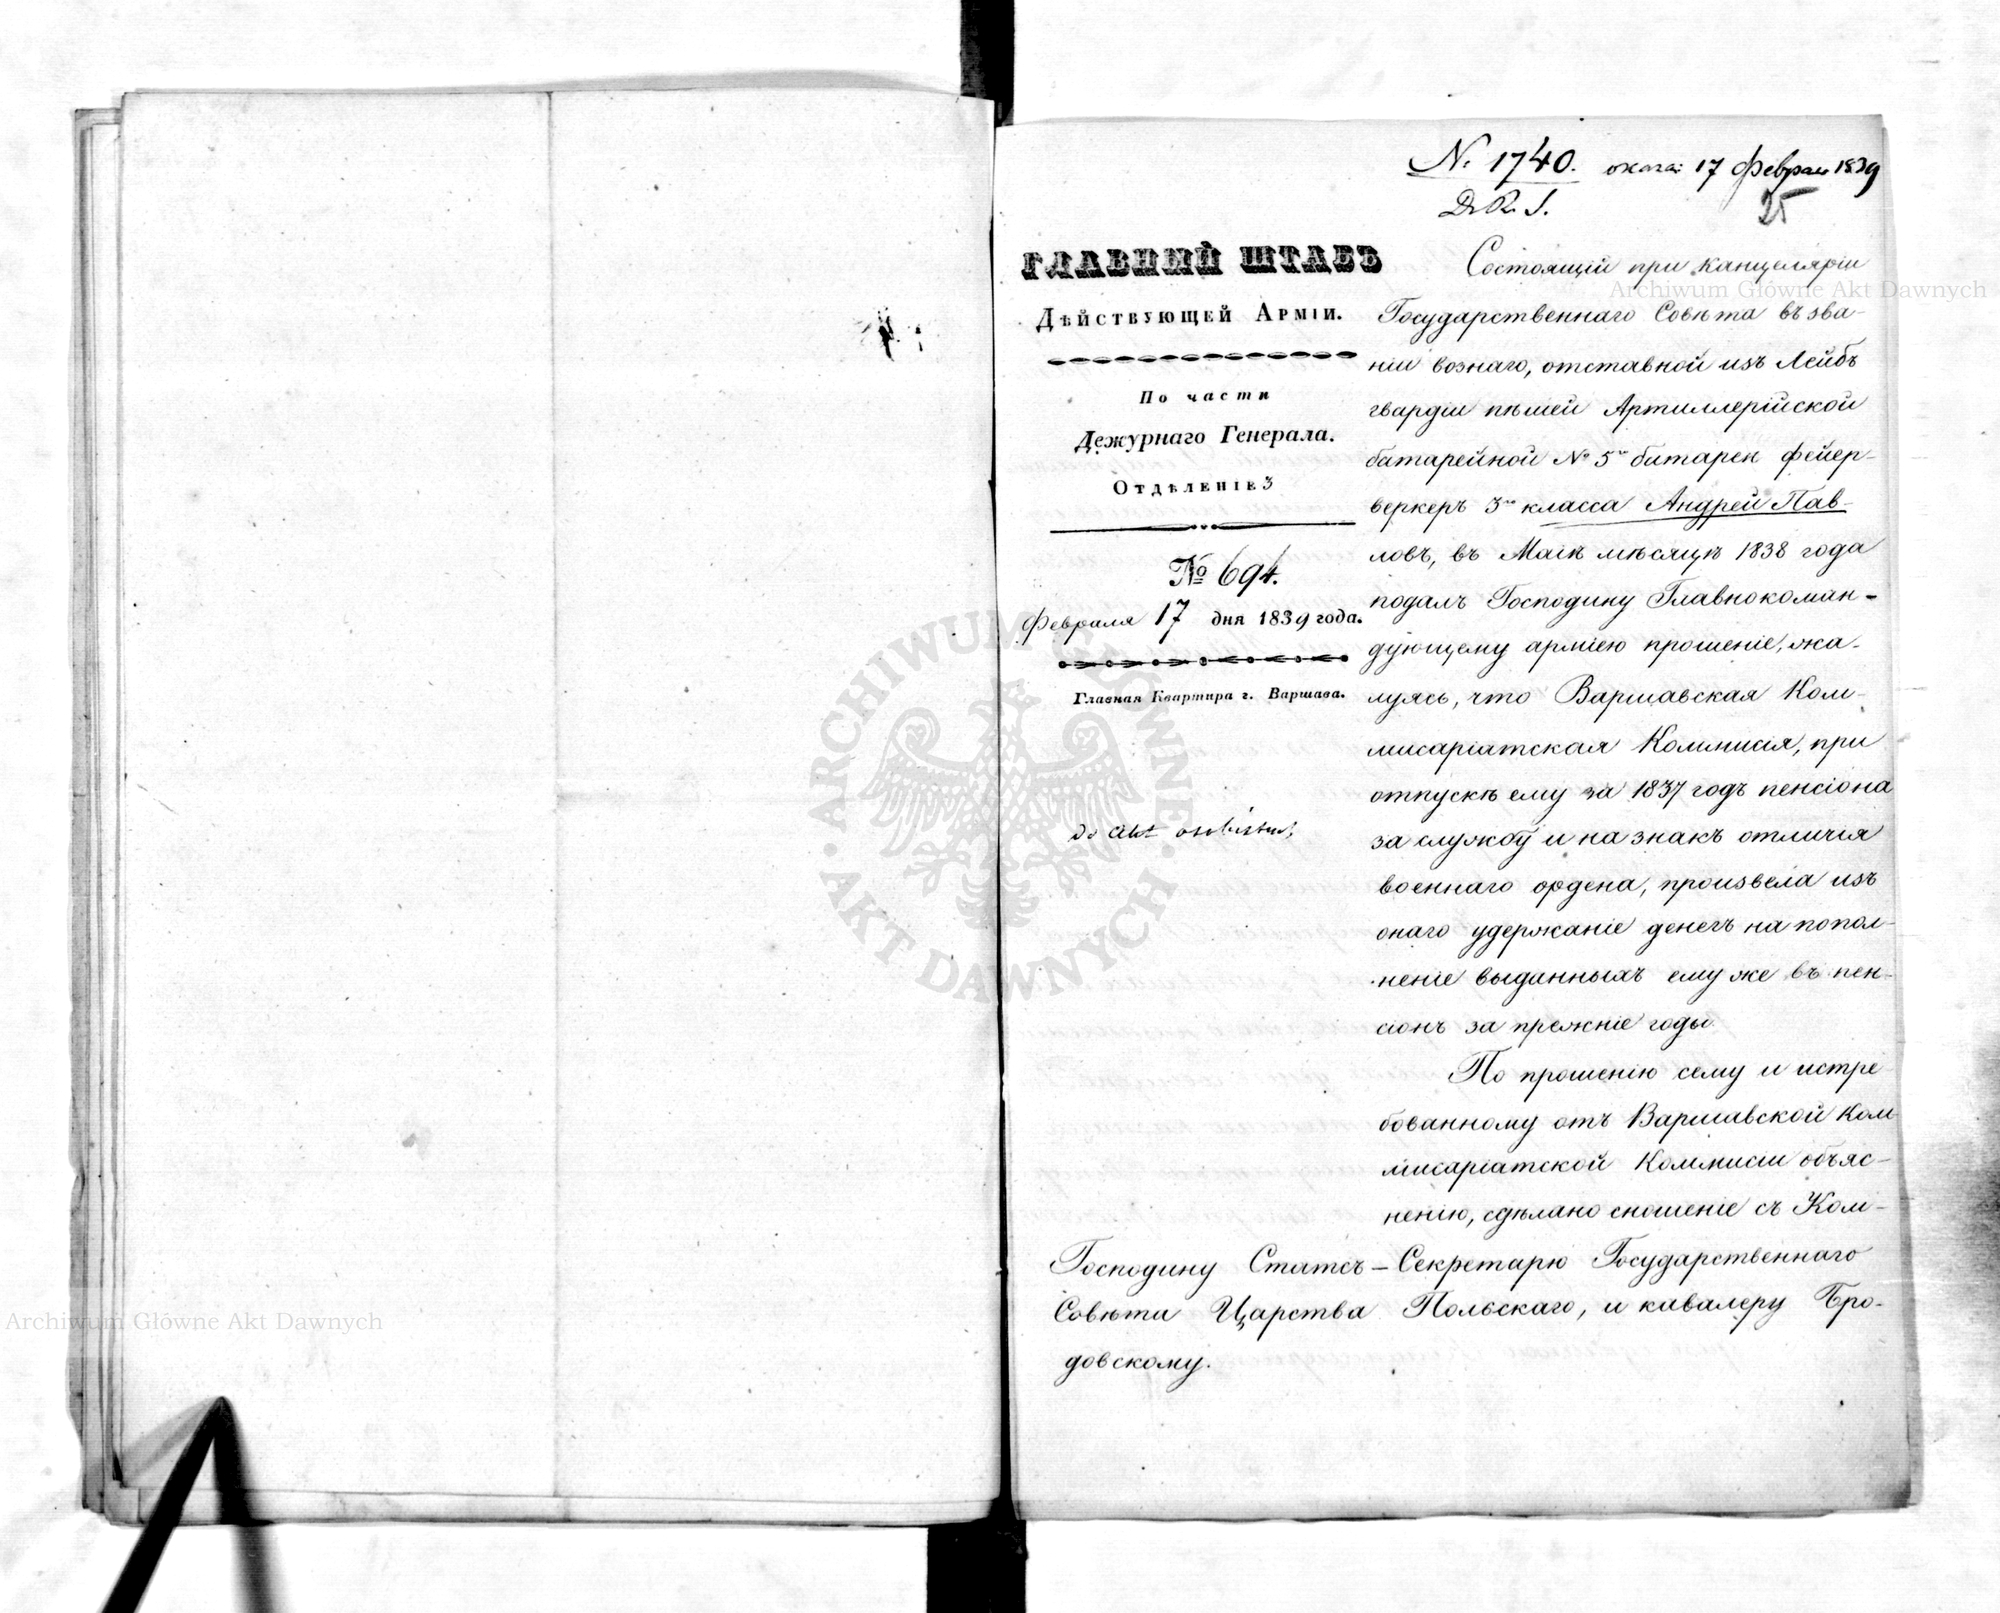 № 1740. 17 Феврал 1839
D. R. S.
25
ГЛАВНЫЙ ШТАБЪ
Дѣйствующей Арміи.
По части
Дежурнаго Генерала.
Отдѣленіе 3
№ 694.
Февраля 17 дня 1839 года.
Главная Квартира г. Варшава.
do akt
Состоящій при канцеляріи
Государственнаго Совѣта въ зва-
ніи вознаго, отставной изъ Лейбъ
гвардіи пѣшей Артиллерійской
батарейной № 5й батареи фейер-
веркеръ 3го класса Андрей Пав-
ловъ, въ Маіѣ мѣсяцѣ 1838 года
подалъ Господину Главнокоман-
дующему арміею прошеніе, жа-
луясь, что Варшавская Ком-
мисаріатская Коммисія, при
отпускѣ ему за 1837 годъ пенсіона
за службу и на знакъ отличія
военнаго ордена, произвела изъ
онаго удержаніе денегъ на попол-
неніе выданныхъ ему же въ пен-
сіонъ за прежніе годы
По прошенію сему и истре
бованному отъ Варшавской Ком
мисаріатской Коммисіи объяс-
ненію, сдѣлано сношеніе съ Ком-
Господину Статсъ-Секретарю Государственнаго
Совѣта Царства Польскаго, и кавалеру Бро-
довскому.
Archiwum Główne Akt Dawnych
Archiwum Główne Akt Dawnych
ARCHIWUM GŁÓWNE AKT DAWNYCH